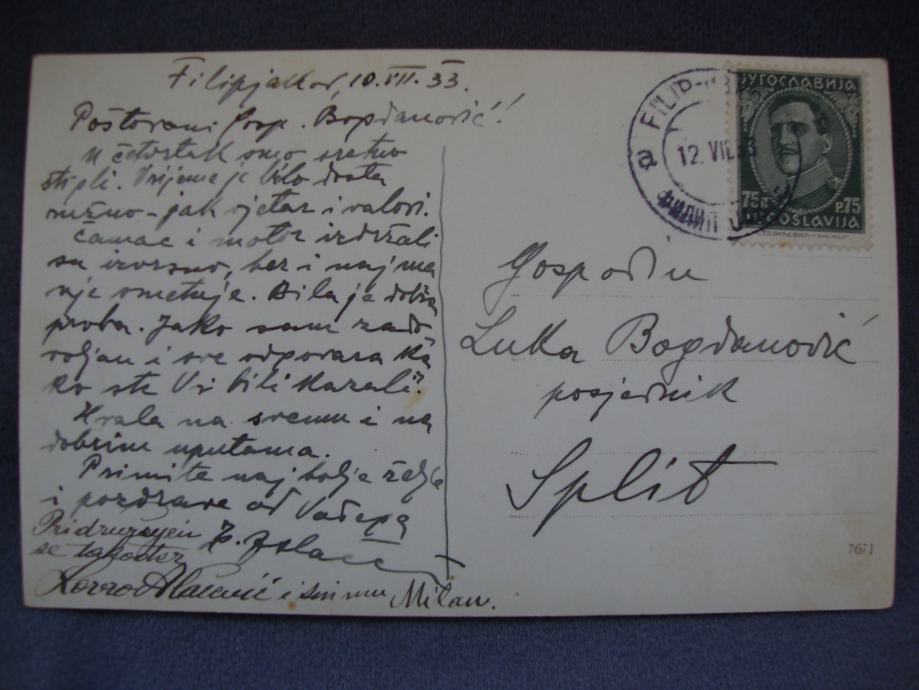 Filipjakov, 10.VII.33.
Poštovani Gosp. Bogdanović!
U četvrtak smo sretno
stigli. Vrijeme je bilo dosta
ružno - jak vjetar i valovi.
Čamac i motor izdržali
su izvrsno, bez i najma
nje smetnje. Bila je dobra
proba. Jako sam zado
voljan i sve odgovara ka
ko ste Vi bili kazali.
Hvala na svemu i na
dobrim uputama.
Primite najbolje želje
i pozdrave od Vašega
Pridružujem
se također
i sin mu Milan.
FILIP-
12.VII.33
ФИЛИП
ЈУГОСЛАВИЈА
75П P.75
JUGOSLAVIJA
Gospodin
Luka Bogdanović
posjednik
Split
7671